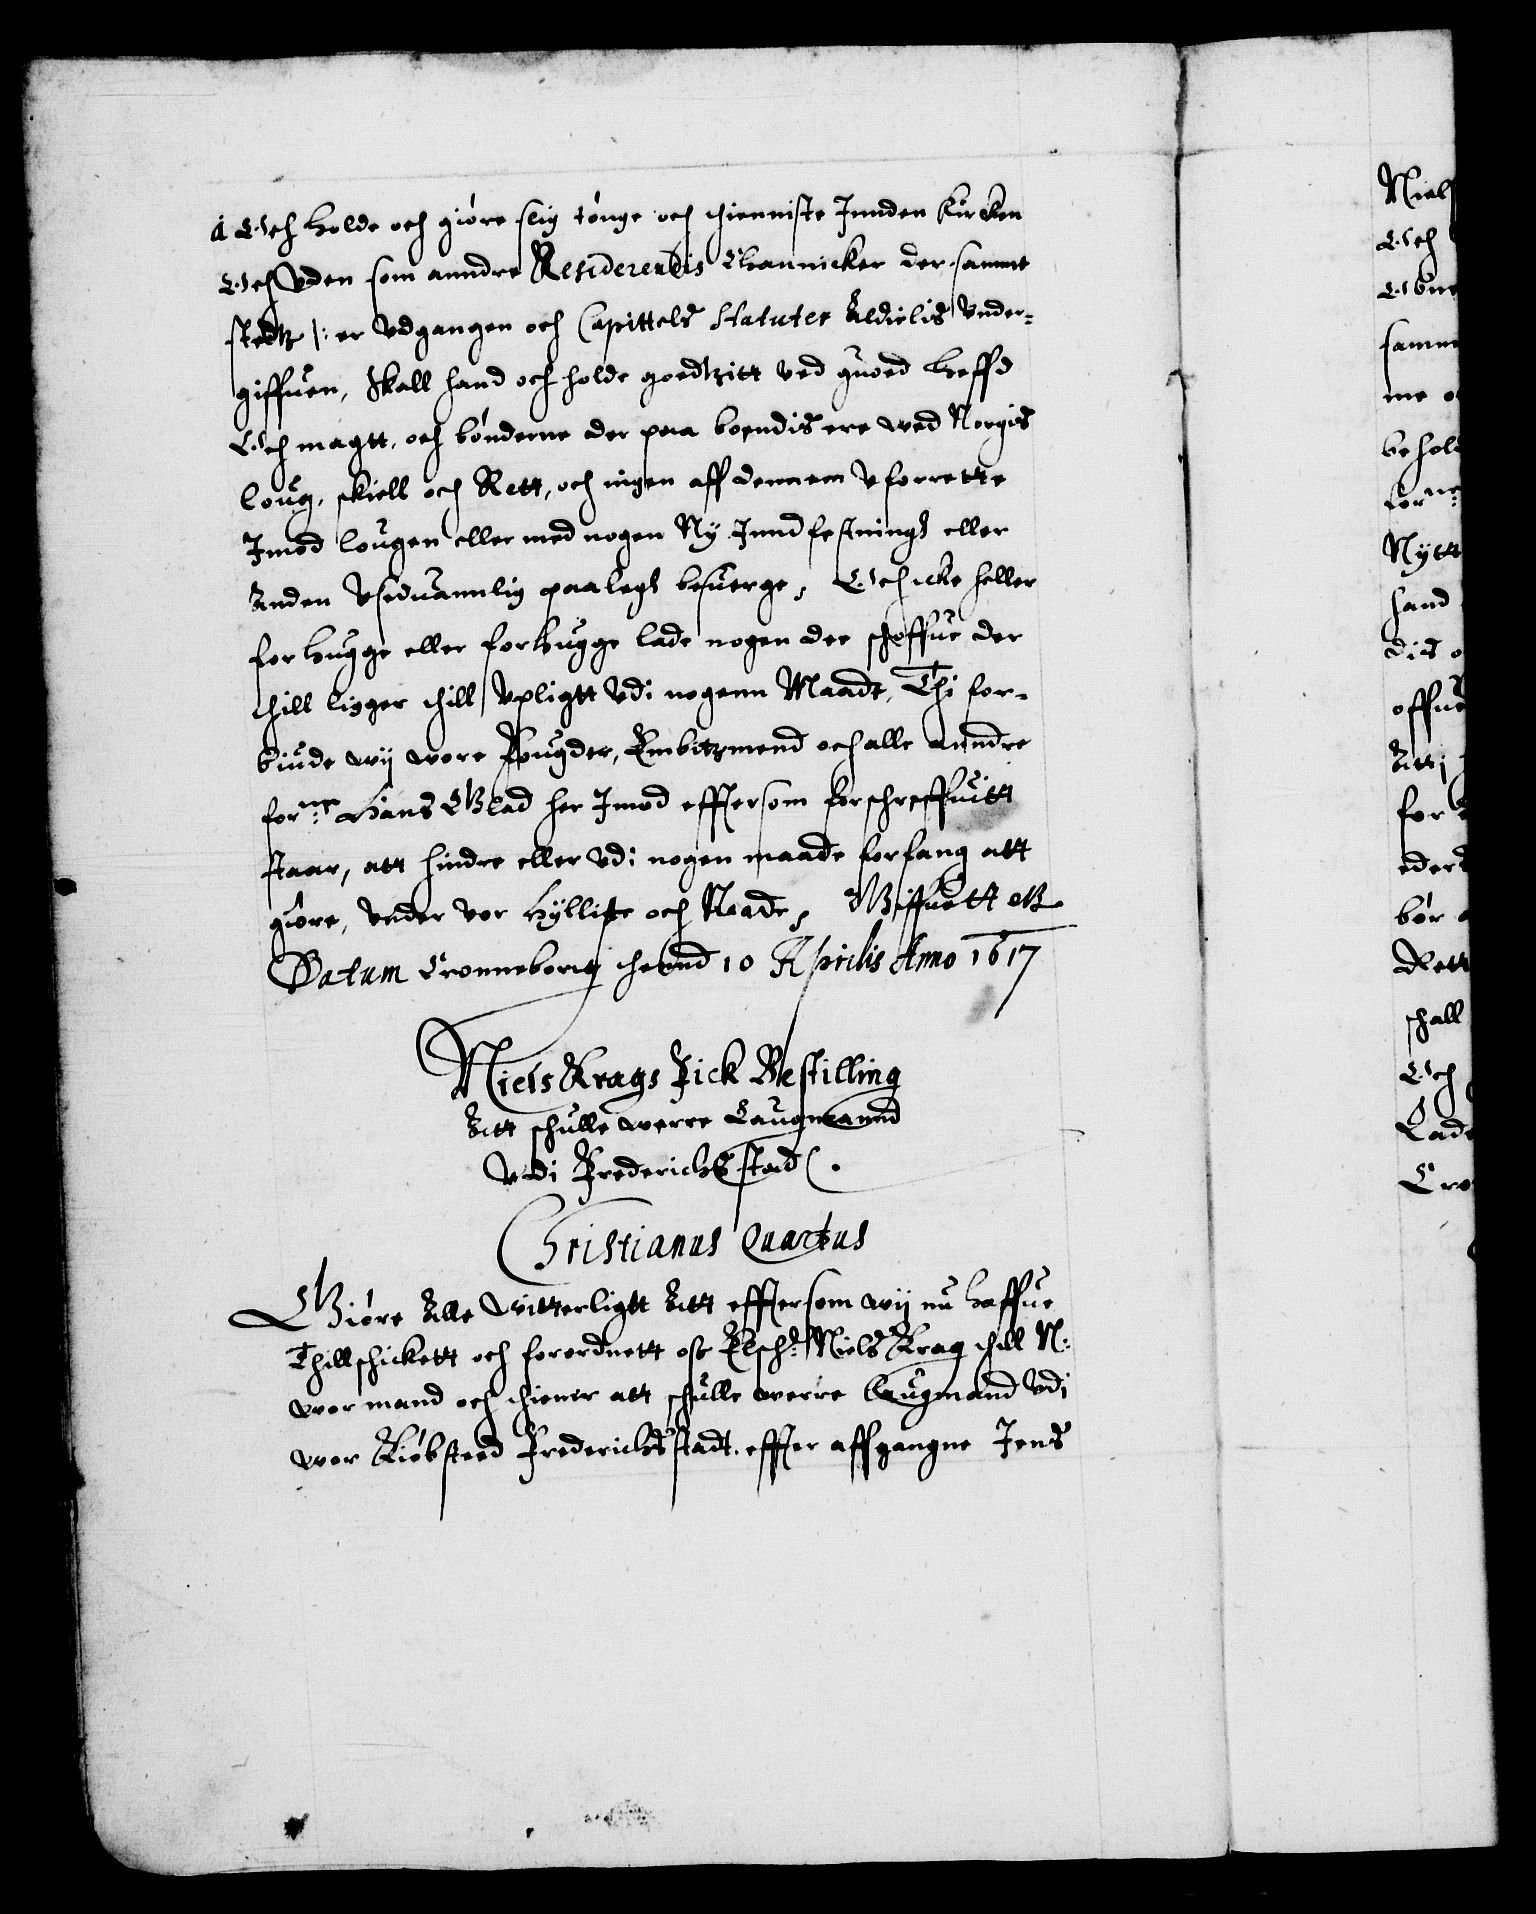 Och holde och giöre slig tönge och thienniste Inden Kircken
Och Uden som anndre Residerendis Channicker der samme
stedtz /: er Udgangen och Capittels Statuter Aldielis Under-
giffuen, Skall hand och holde goedtzitt ved guoed heffd
Och magtt, och bönderne der paa boendis ere wed Norgis
loug, skiell och Rett, och ingen aff dennem Uforrette
Imod lougen eller med nogen Ny Inndfestnings eller
Anden Useduannlig paalegs besuerge, Och icke heller
forhugge eller forhugge lade nogen dee schoffue der
thill ligger thill Upligtt Udi nogenn Maade, Thi for-
biude wij wore Fougder, Embitzmend och alle anndre
forne: Hans Glad her Imod effter som forschreffuitt
staar, att hindre eller Udi nogen maade forfang att
giöre, Under vor hylliste och Naade, Giffuett etc
Datum Cronneborig thennd 10 Aprilis Anno 1617
Niels Krags Fick Bestilling
Att schulle werre Laugmannd
Udi Frederichsstad.
Christianus Quartus
Giöre Alle witterligtt Att efftersom wij nu haffue
Thillschickett och forordnett oss Elsch: Niels Krag thill N:
wor mand och thiener att schulle werre Laugmand Udi
wor Kiöbsteed Frederichsstadt effter affgangne Jens
Niels
Och
samme
me
behold
forne:
Nytt
hand
dis
offue
Att
for
bör
Rett
schall
Och
Lade
Cro